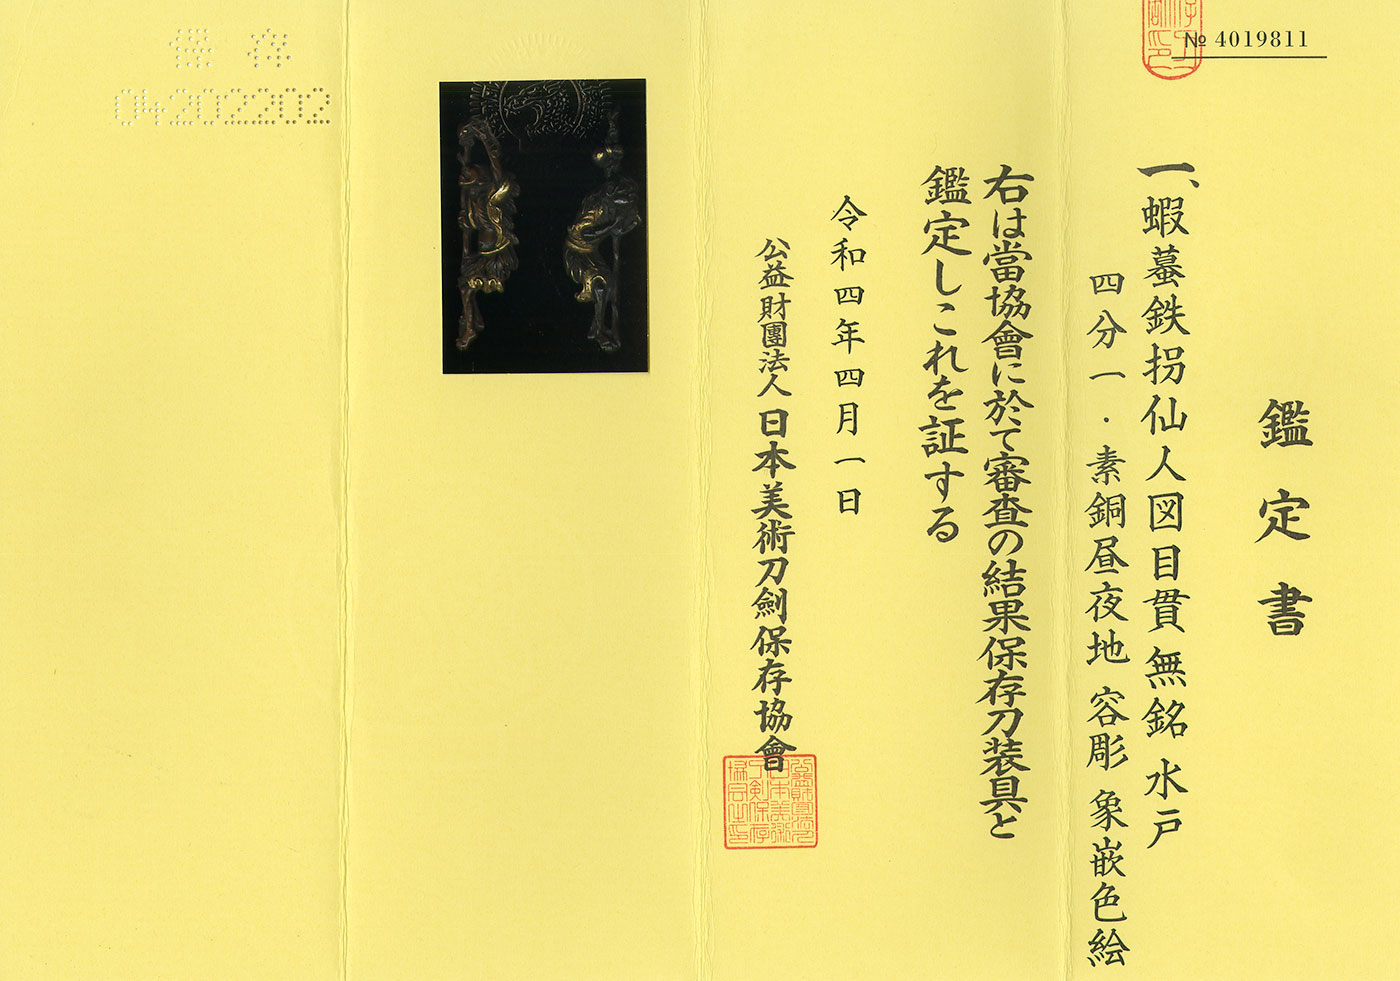 № 4019811
鑑定書
一、蝦蟇鉄拐仙人図目貫 無銘 水戸
四分一・素銅昼夜地 容彫 象嵌色絵
右は當協會に於て審査の結果保存刀装具と
鑑定しこれを証する
令和四年四月一日
公益財團法人 日本美術刀劍保存協會
保存
04202202